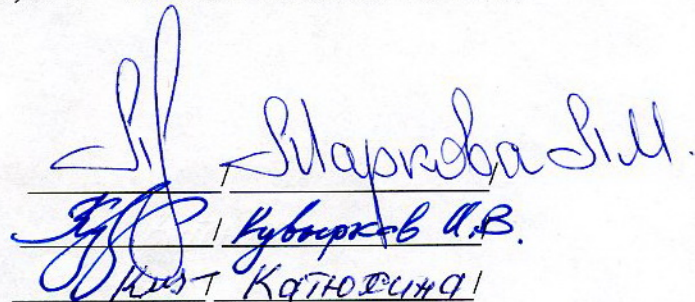 / Маркова Л.М.
/ Кувырков И.В.
/ Катюхина /